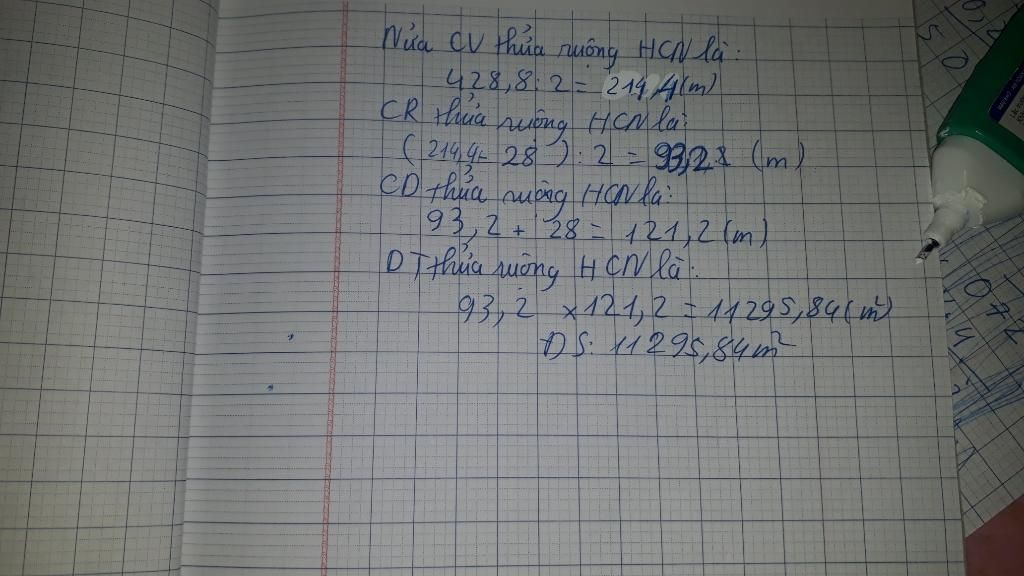 Nửa CV thửa ruộng HCN là:
428,8 : 2 = 214,4 (m)
CR thửa ruộng HCN là:
( 214,4 - 28 ) : 2 = 93,2 (m)
CD thửa ruộng HCN là:
93,2 + 28 = 121,2 (m)
DT thửa ruộng HCN là:
93,2 x 121,2 = 11295,84 (m²)
ĐS: 11295,84 m²